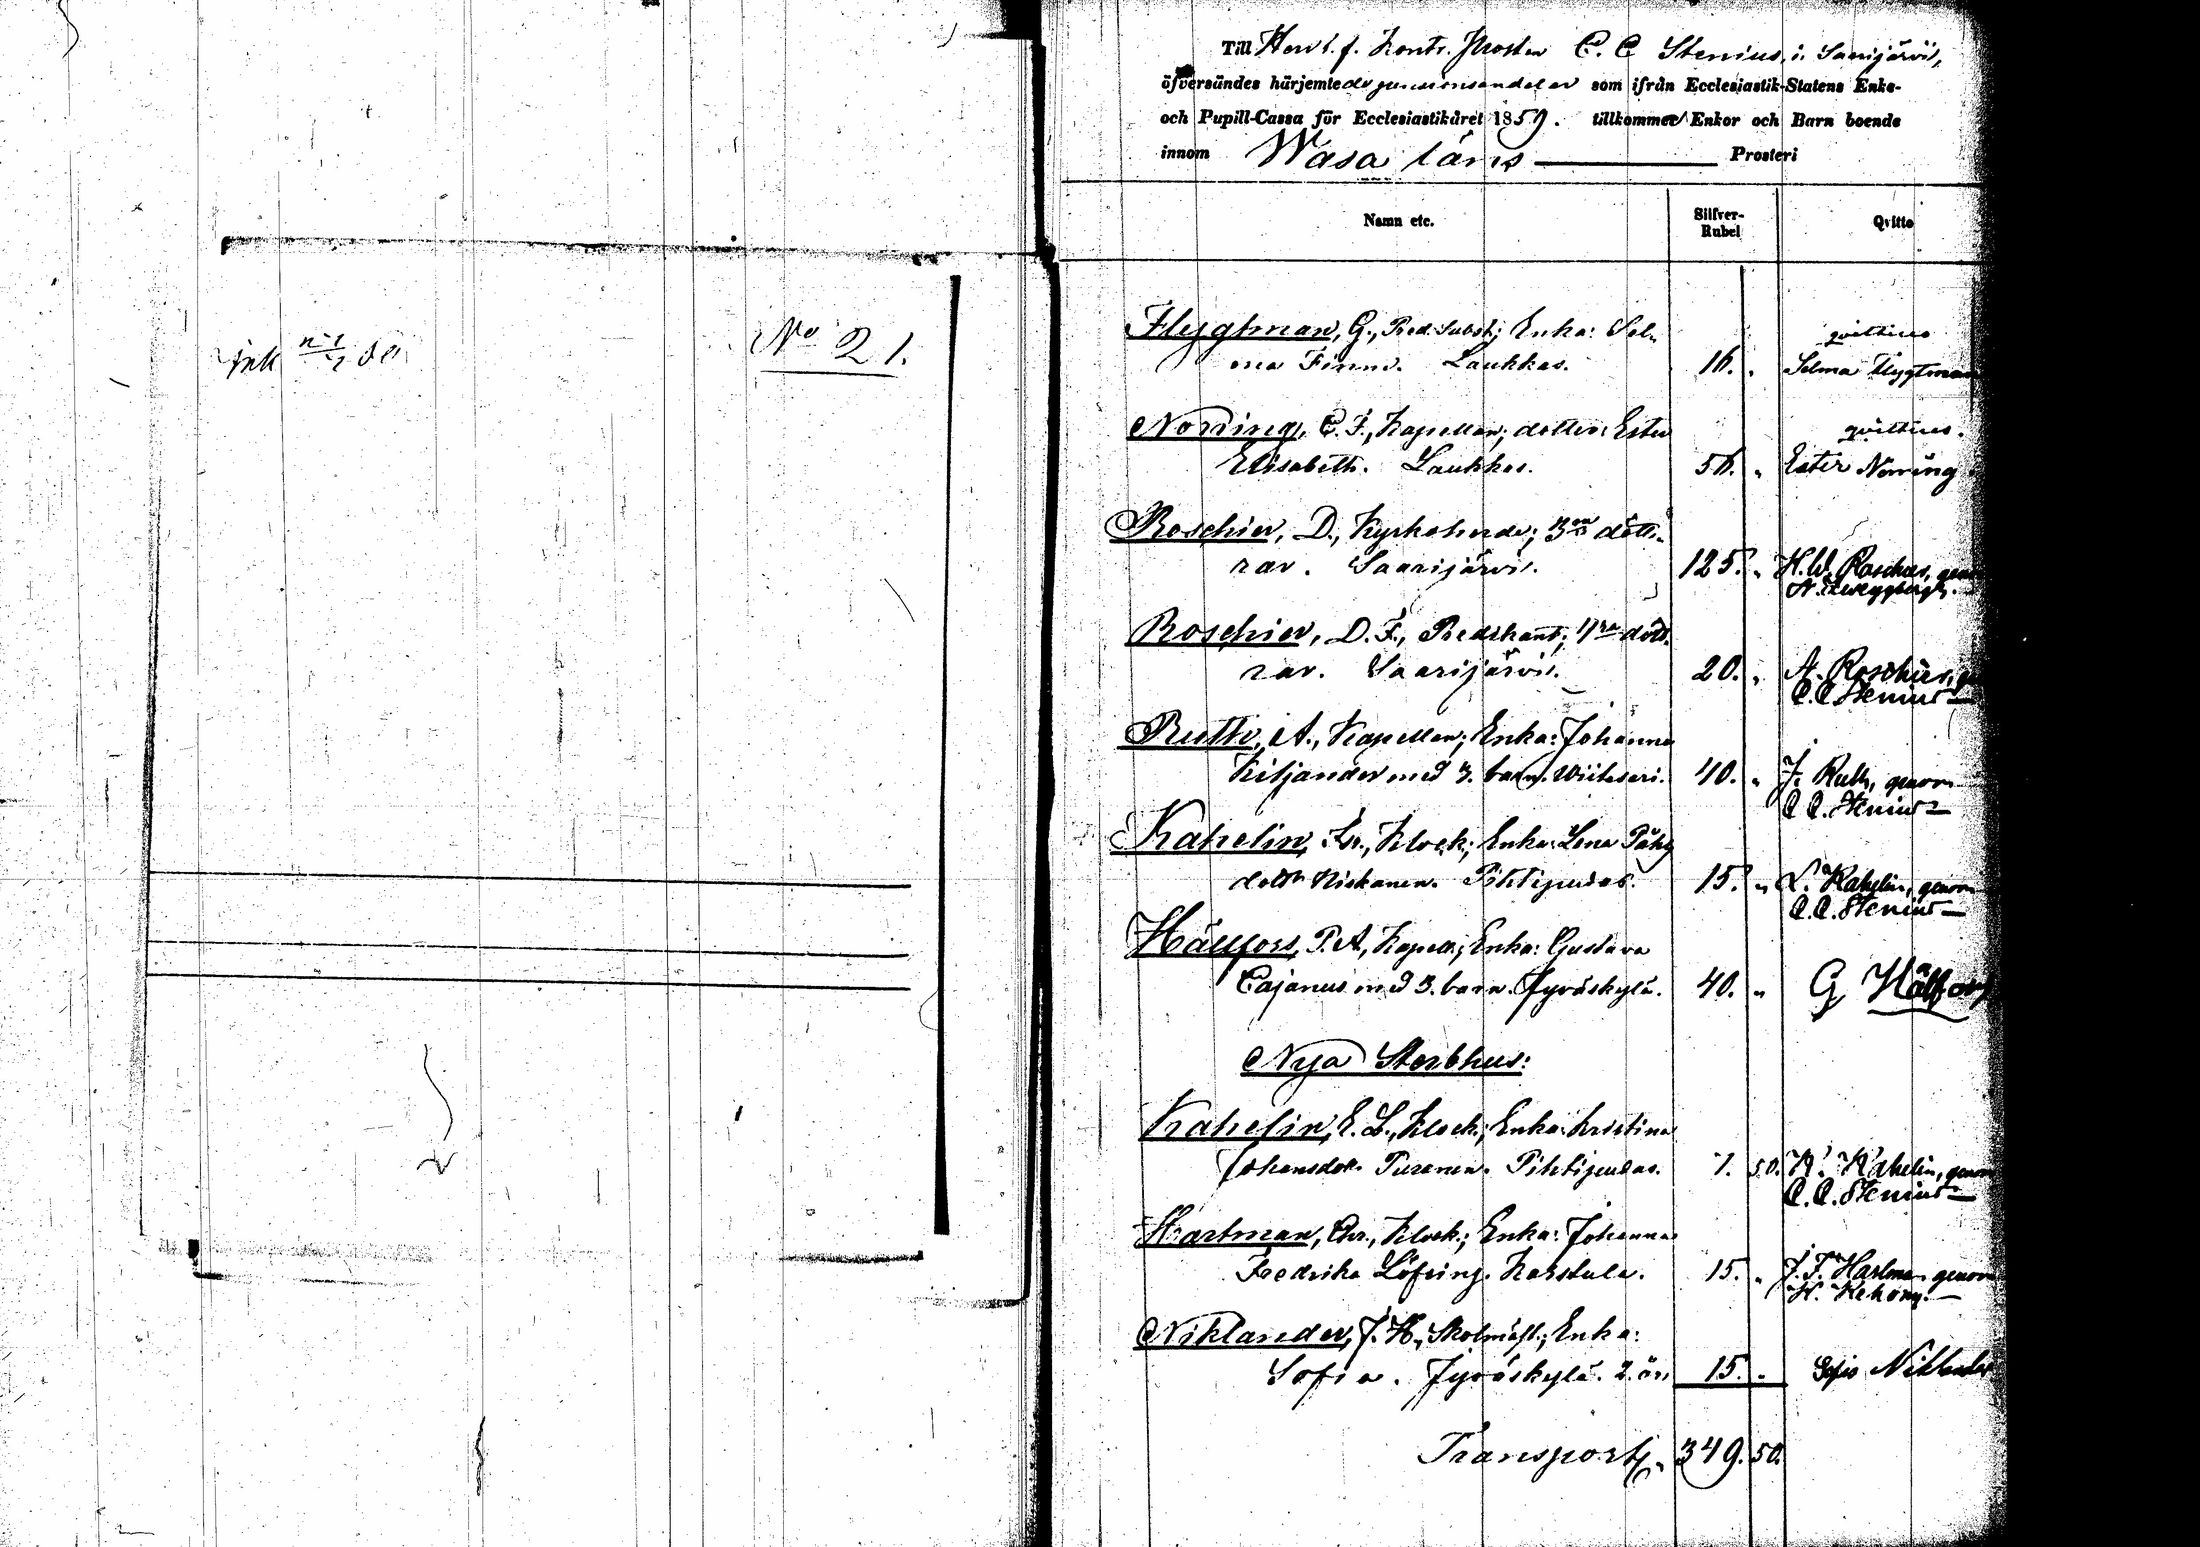 ink
No 21.
Till Herr t. f. Kontr. Prosten C. C Stenius, i. Saarijärvi,
öfversändes härjemte de pensionsandelar som ifrån Ecclesiastik-Statens Enke-
och Pupill-Cassa för Ecclesiastikåret 1859. tillkommer Enkor och Barn boende
innom Wasa läns Prosteri
Namn etc. Silfver-Rubel Qvitto
Flygtman, G., Pred. Subst; Enka: Sel- qvitteras
ma Finne. Laukkas. 16. „ Selma Flygtman
Norring, C. F., Kapellan; dotter: Ester qvitteras.
Elisabeth. Laukkas. 56. „ Ester Norring
Roschier, D., Kyrkoherde; 3ne dött-
rar. Saarijärvi. 125. „ H. W. Roschier, genom
Roschier, D. F., Predikant; 4ra dött-
rar. Saarijärvi. 20. „ A. Roschier,
C. C Stenius
Ruth, A., Kapellan; Enka: Johanna
Kiljander med 3. barn. Wiitasari. 40. „ J. Ruth, genom
C. C. Stenius
Kahelin, Er., Klock.; Enka: Lena Påhls
dottr Niskanen. Pihtipudas. 15. „ L. Kahelin, genom
C. C. Stenius
Hällfors, P. A, Kapell.; Enka: Gustava
Cajanus med 3. barn. Jyväskylä. 40. „ G Hällfors
Nya Sterbhus:
Kahelin, E. L., Klock.; Enka: Kristina
Johansdotr Turanen. Pihtipudas. 7. 50. K. Kahelin, genom
C. C. Stenius
Hartman, Chr., Klock.; Enka: Johanna
Fredrika Löfving. Karstula. 15. „ J. F. Hartman genom
Niklander, J. H., Skolmäst.; Enka:
Sofia. Jyväskylä. 2. år. 15. „ Sofia Niklander
Transport, 349. 50.